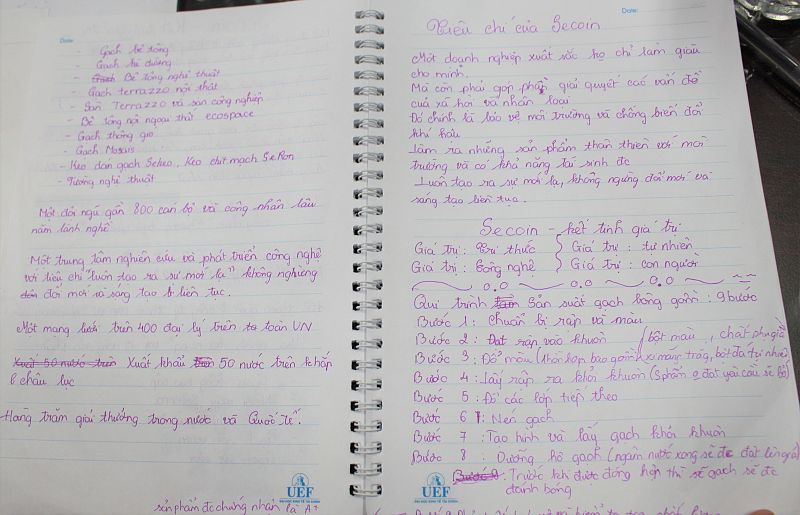 Date:
- Gạch bê tông
- Gạch hè đường
- Bê tông nghệ thuật
- Gạch terrazzo nội thất
- Sàn Terrazzo và sàn công nghiệp
- Bê tông nội ngoại thất ecospace
- Gạch thông gió
- Gạch Mosais
- Keo dán gạch Scheo, Keo chít mạch SeRon
- Tường nghệ thuật
Một đội ngũ gần 800 cán bộ và công nhân lâu
năm lành nghề
Một trung tâm nghiên cứu và phát triển công nghệ
với tiêu chí "luôn tạo ra sự mới lạ" không ngừng
đổi mới và sáng tạo liên tục.
Một mạng lưới trên 400 đại lý trên toàn VN
Xuất 50 nước trên Xuất khẩu 50 nước trên khắp
6 châu lục
Hàng trăm giải thưởng trong nước và Quốc tế.
UEF
sản phẩm đc chứng nhận là A+
Date:
Tiêu chí của Secoin
Một doanh nghiệp xuất sắc họ chỉ làm giàu
cho mình.
Mà còn phải góp phần giải quyết các vấn đề
của xã hội và nhân loại
Đó chính là bảo vệ môi trường và chống biến đổi
khí hậu
Làm ra những sản phẩm thân thiện với môi
trường và có khả năng tái sinh đc
Luôn tạo ra sự mới lạ, không ngừng đổi mới và
sáng tạo liên tục.
Secoin - kết tinh giá trị
Giá trị: Tri thức Giá trị: tự nhiên
Giá trị: Công nghệ Giá trị: con người
Qui trình sản suất gạch bông gồm: 9 bước
Bước 1: Chuẩn bị rập và màu
Bước 2: Đặt rập vào khuôn
bột màu, chất phụ gia
Bước 3: Đổ màu (hỗn hợp bao gồm xi măng trắng, bột đá tự nhiên
Bước 4: Lấy rập ra khỏi khuôn (sphẩm o đạt yêu cầu sẽ bỏ)
Bước 5: Đổ các lớp tiếp theo
Bước 6: Nén gạch
Bước 7: Tạo hình và lấy gạch khỏi khuôn
Bước 8: Dưỡng hộ gạch (ngâm nước xong sẽ đc đặt lên giá)
Bước 9. Trước khi được đóng hộp thì sẽ gạch sẽ đc
đánh bóng
UEF